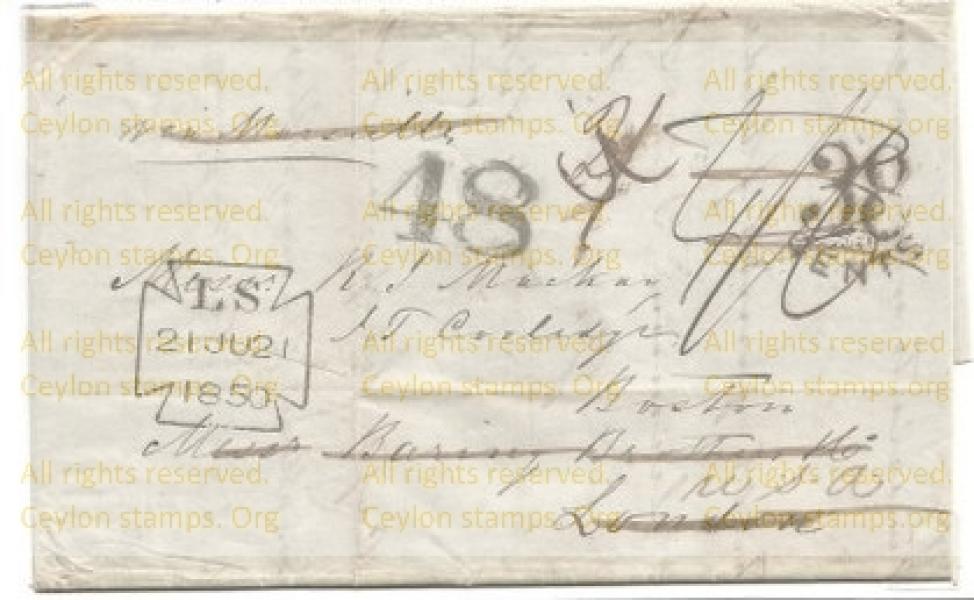 All rights reserved. All rights reserved. All rights reserved.
Ceylon stamps. Org Ceylon stamps. Org Ceylon stamps.org
via Marseille
48
CENTS
All rights reserved. All rights reserved. All rights reserved.
Ceylon stamps. Org Ceylon stamps. Org Ceylon stamps.org
Messrs
LS
21JU21
1850
J T Coolidge
All rights reserved. All rights reserved. All rights reserved.
Ceylon stamps. Org Ceylon stamps. Org Ceylon stamps.org
Boston
Messrs Baring Brothers
USA
All rights reserved. All rights reserved. All rights reserved.
Ceylon stamps. Org Ceylon stamps. Org Ceylon stamps.org
London